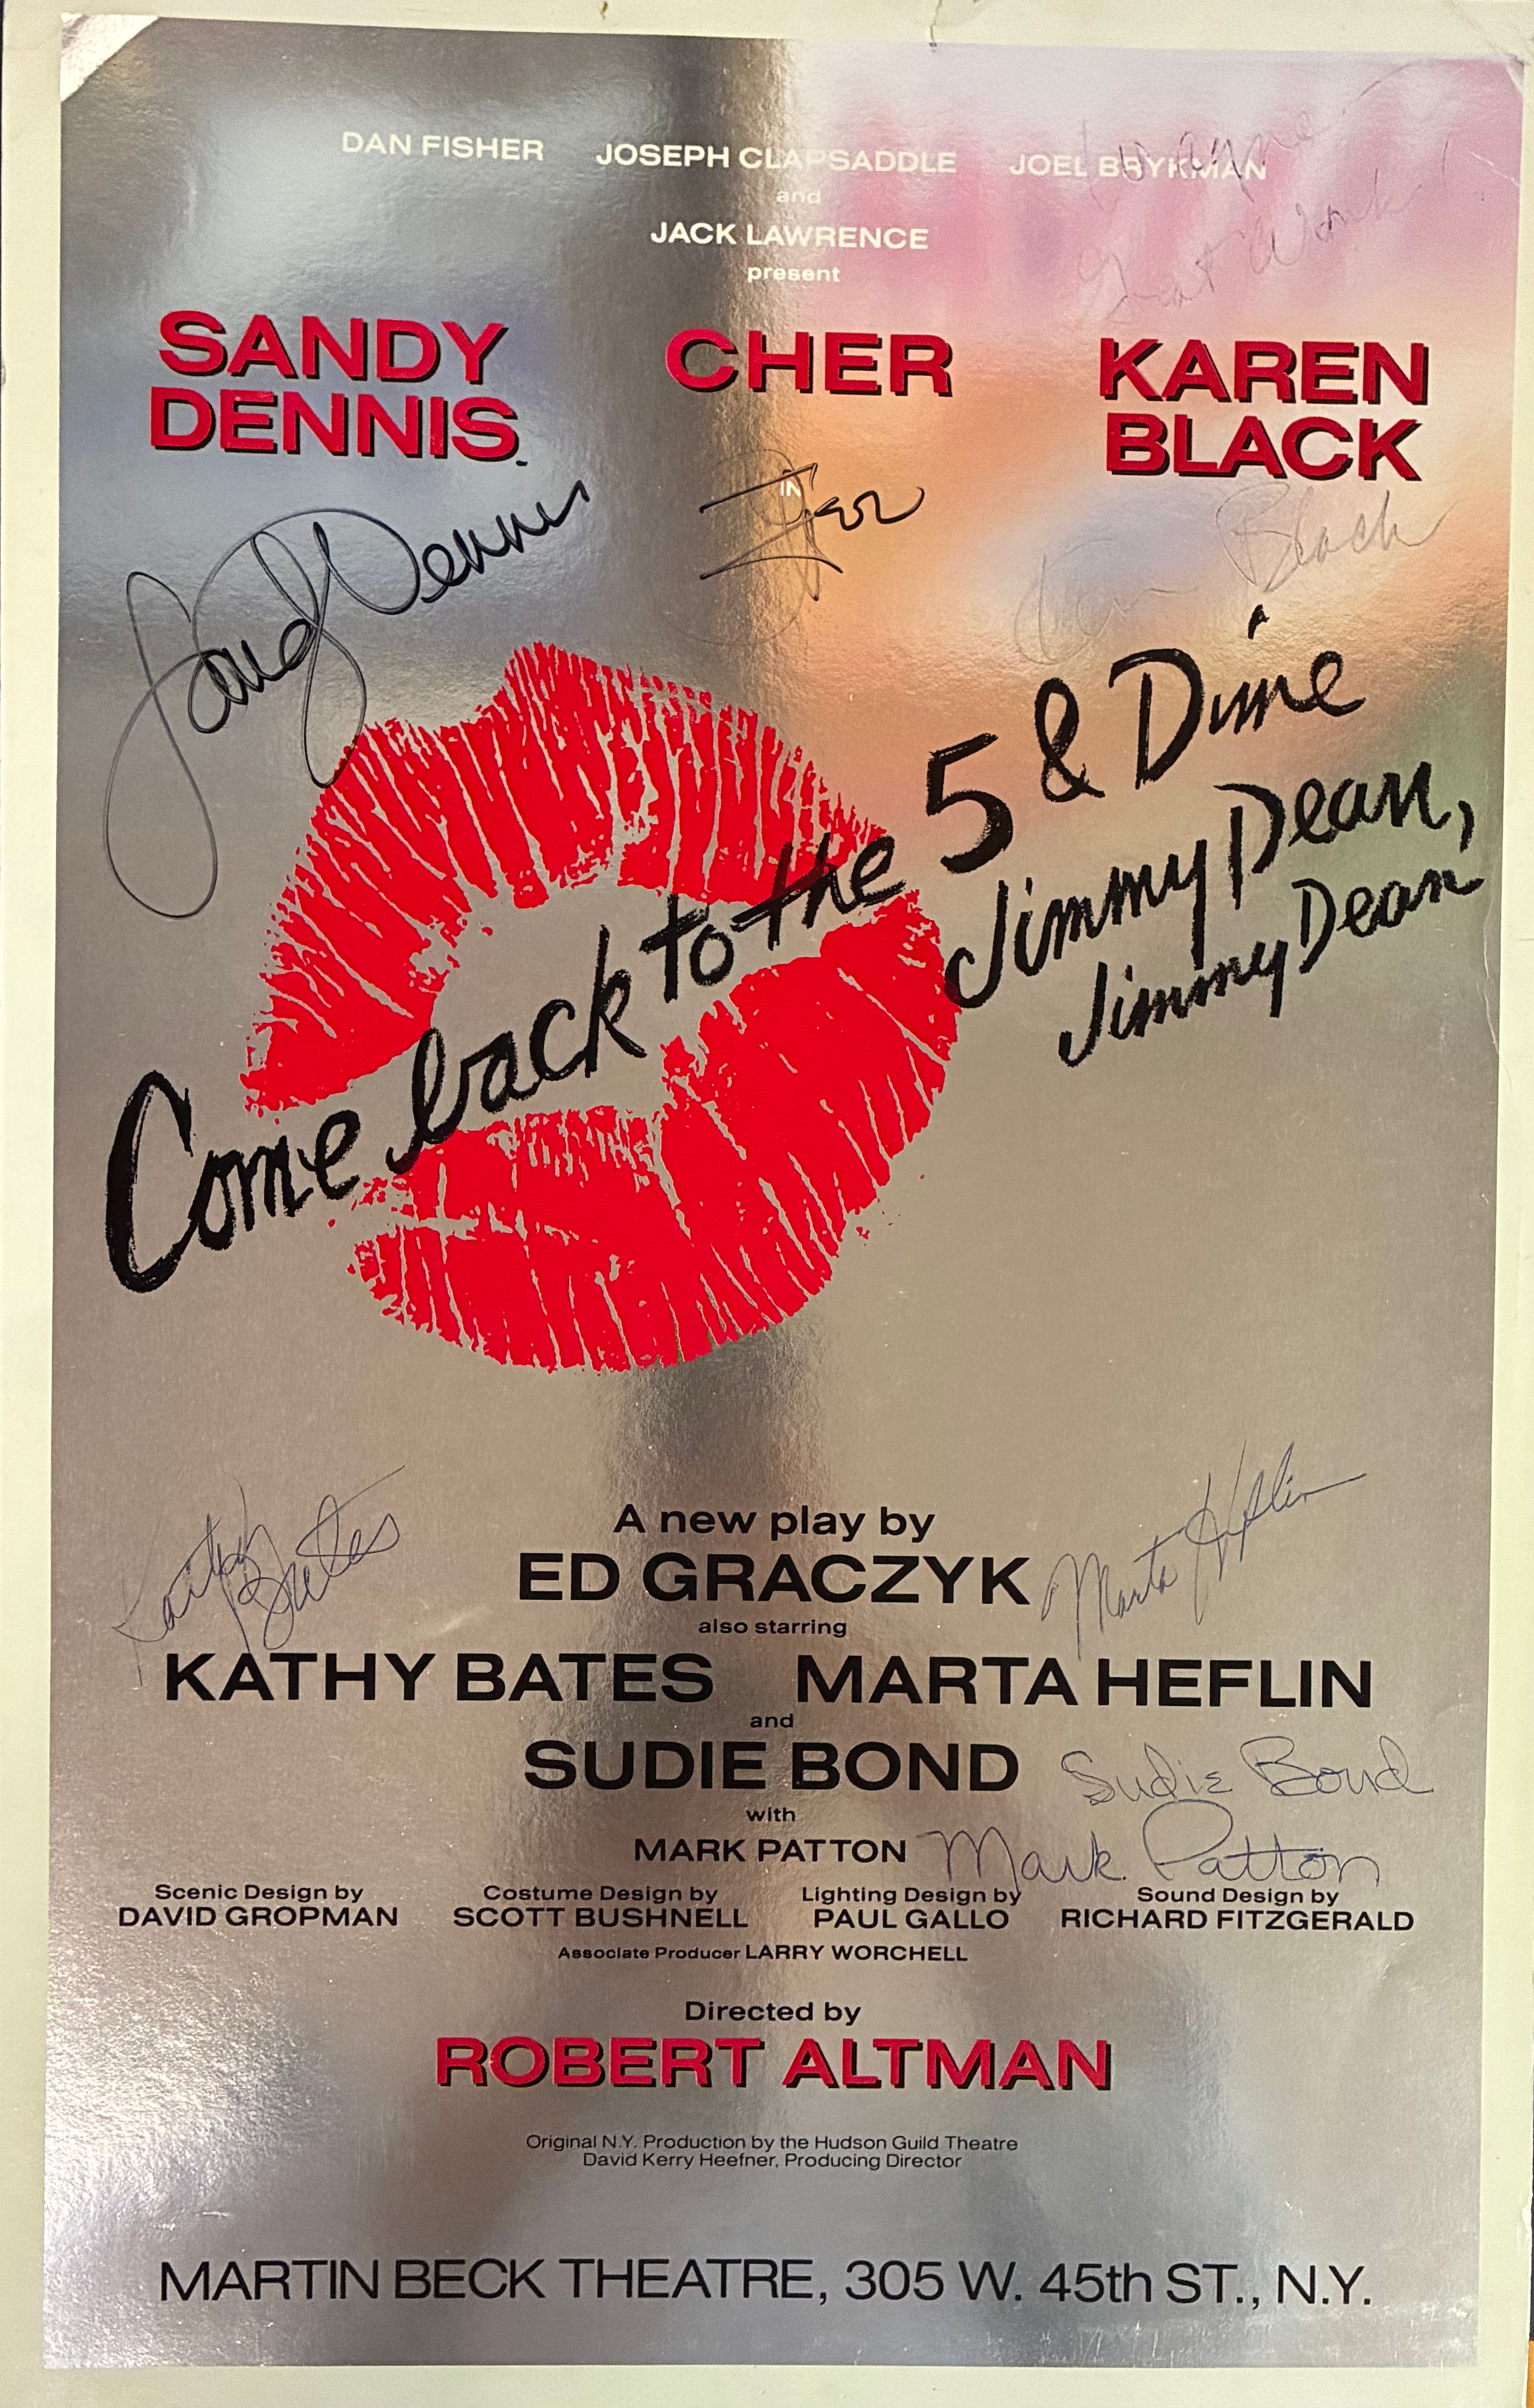 DAN FISHER JOSEPH CLAPSADDLE JOEL BRYKMAN
and
JACK LAWRENCE
present
Great Work!
SANDY DENNIS
CHER
KAREN BLACK
IN
Sandy Dennis
Cher
Karen Black
Come back to the 5 & Dime
Jimmy Dean,
Jimmy Dean
A new play by
ED GRACZYK
also starring
Kathy Bates
Marta Heflin
KATHY BATES MARTA HEFLIN
and
SUDIE BOND Sudie Bond
with
MARK PATTON Mark Patton
Scenic Design by
DAVID GROPMAN
Costume Design by
SCOTT BUSHNELL
Lighting Design by
PAUL GALLO
Sound Design by
RICHARD FITZGERALD
Associate Producer LARRY WORCHELL
Directed by
ROBERT ALTMAN
Original N.Y. Production by the Hudson Guild Theatre
David Kerry Heefner, Producing Director
MARTIN BECK THEATRE, 305 W. 45th ST., N.Y.